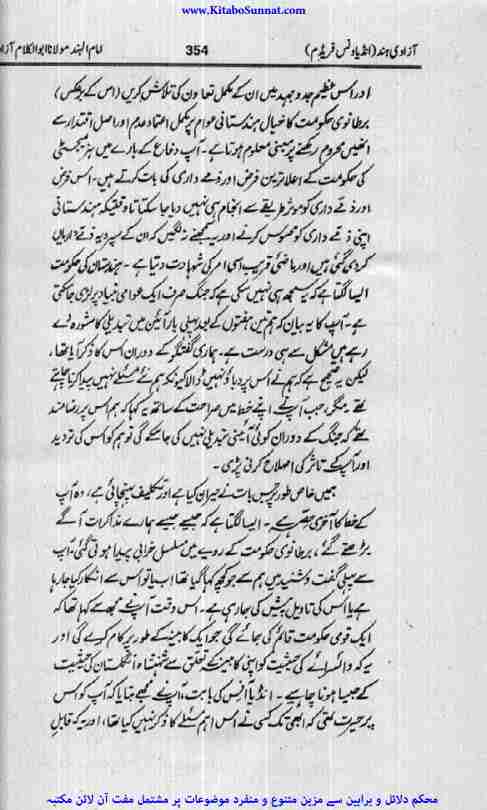 www.KitaboSunnat.com
آزادی ہند (انڈیا ونس فریڈم) 354 امام الہند مولانا ابوالکلام آزاد
اور اس عظیم جدوجہد میں ان کے مکمل تعاون کی تلاش کریں (اس کے برعکس)
برطانوی حکومت کا خیال ہندستانی عوام پر مکمل اعتماد عدم اور اصل اقتدار سے
انھیں محروم رکھنے پر مبنی معلوم ہوتا ہے۔ آپ دفاع کے بارے میں ہز میجسٹی
کی حکومت کے اعلا ترین فرض اور ذمے داری کی بات کرتے ہیں۔ اس فرض
اور ذمے داری کو موثر طریقے سے انجام ہی نہیں دیا جا سکتا تا وقتیکہ ہندستانی
اپنی ذمے داری کو محسوس کرنے اور یہ سمجھنے نہ لگیں کہ ان کے سپرد یہ ذمے داریاں
کر دی گئی ہیں اور ماضی قریب اسی امر کی شہادت دیتا ہے۔ ہندستان کی حکومت
ایسا لگتا ہے کہ یہ سمجھ ہی نہیں سکی ہے کہ جنگ صرف ایک عوامی بنیاد پر لڑی جا سکتی
ہے۔ آپ کا یہ بیان کہ ہم تین ہفتوں کے بعد پہلی بار آئین میں تبدیلی کا مشورہ دے
رہے ہیں مشکل سے ہی درست ہے۔ ہماری گفتگو کے دوران اس کا ذکر آیا تھا،
لیکن یہ صحیح ہے کہ ہم نے اس پر دباؤ نہیں ڈالا کیونکہ ہم نئے مسئلے نہیں پیدا کرنا چاہتے
تھے مگر جب آپ نے اپنے خط میں صراحت کے ساتھ یہ کہا کہ ہم اس پر رضامند
تھے کہ جنگ کے دوران کوئی آئینی تبدیلی نہیں کی جا سکے گی تو ہم کو اس کی تردید
اور آپ کے تاثر کی اصلاح کرنی پڑی۔
ہمیں خاص طور پر جس بات نے حیران کیا ہے اور تکلیف پہنچائی ہے، وہ آپ
کے خط کا آخری حصہ ہے۔ ایسا لگتا ہے کہ جیسے جیسے ہمارے مذاکرات آگے
بڑھتے گئے، برطانوی حکومت کے رویے میں مسلسل خرابی پیدا ہوتی گئی۔ آپ
سے پہلی گفت و شنید میں ہم سے جو کچھ کہا گیا تھا اب یا تو اس سے انکار کیا جا رہا
ہے یا اس کی تاویل پیش کی جا رہی ہے۔ اس وقت آپ نے مجھ سے کہا تھا کہ
ایک قومی حکومت قائم کی جائے گی جو ایک کابینہ کے طور پر کام کرے گی اور
یہ کہ وائسرائے کی حیثیت کو اپنی کابینہ کے تعلق سے شہنشاہ انگلستان کی حیثیت
کے جیسا ہونا چاہیے۔ انڈیا آفس کی بابت، آپ نے مجھے بتایا کہ آپ کو اس
پر حیرت تھی کہ ابھی تک کسی نے اس اہم مسئلے کا ذکر نہیں کیا تھا، اور یہ کہ قابل
محکم دلائل و براہین سے مزین متنوع و منفرد موضوعات پر مشتمل مفت آن لائن مکتبہ